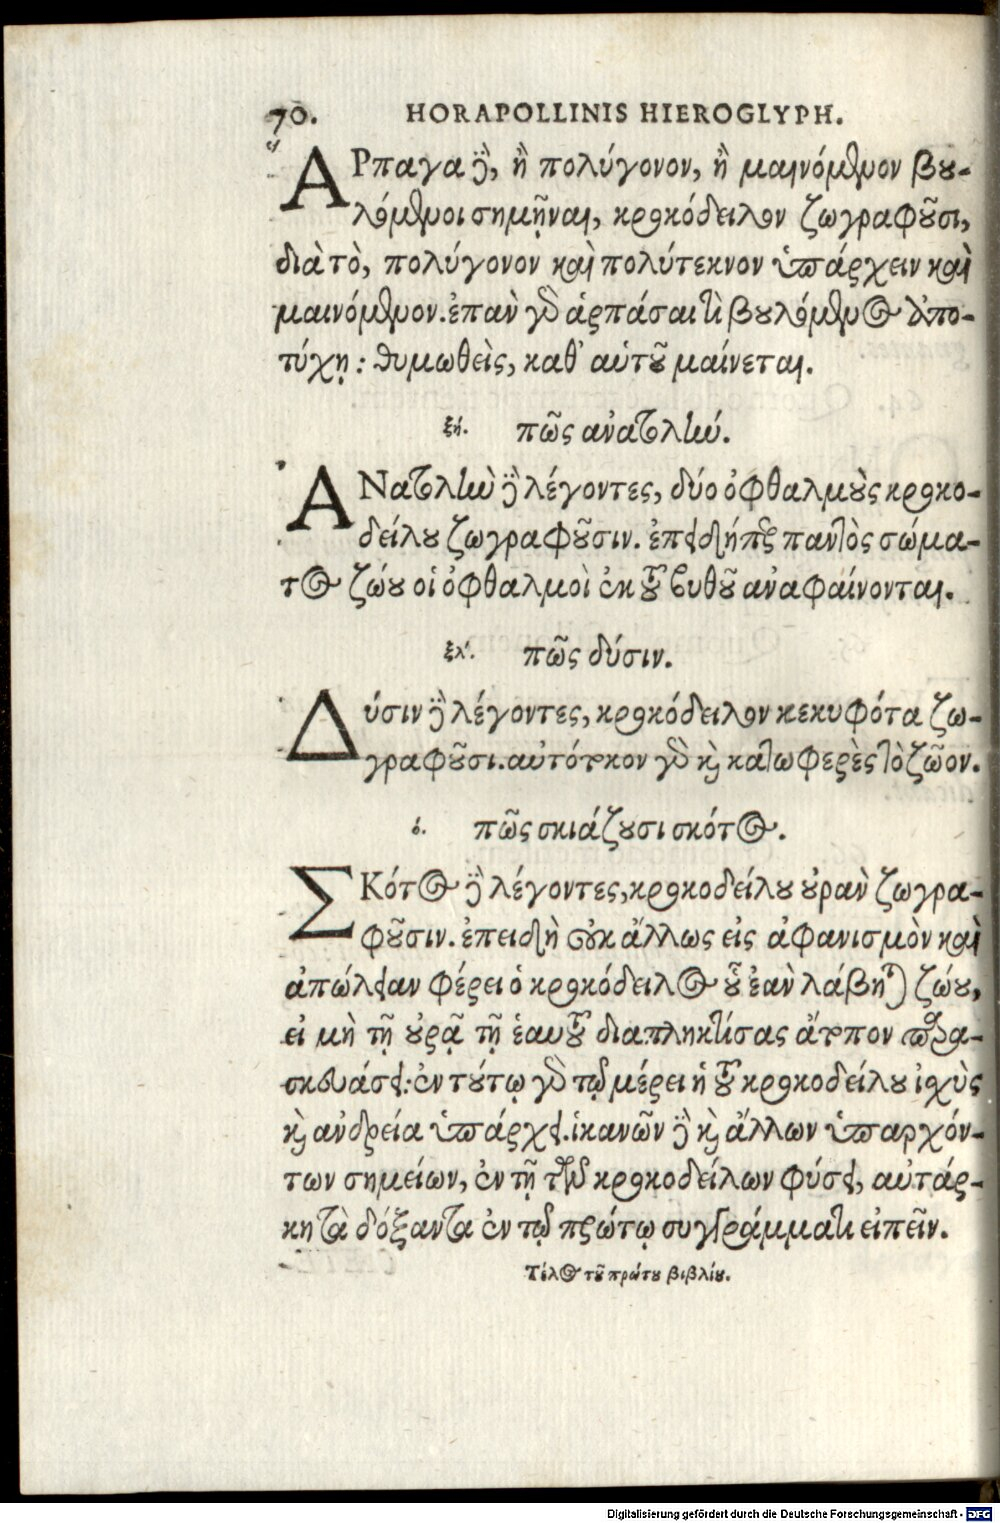 70. HORAPOLLINIS HIEROGLYPH.
ΑΡπαγα δὲ, ἢ πολύγονον, ἢ μαινόμενον βου-
λόμενοι σημῆναι, κροκόδειλον ζωγραφοῦσι,
διὰ τὸ, πολύγονον καὶ πολύτεκνον ὑπάρχειν καὶ
μαινόμενον. ἐπὰν γὰρ ἁρπάσαι τι βουλόμενος ἀπο-
τύχῃ: θυμωθεὶς, καθ’ αὑτοῦ μαίνεται.
ξή. πῶς ἀνατολήν.
ΑΝατολὴν δὲ λέγοντες, δύο ὀφθαλμοὺς κροκο-
δείλου ζωγραφοῦσιν. ἐπειδήπερ παντὸς σώμα-
τος ζώου οἱ ὀφθαλμοὶ ἐκ τοῦ βυθοῦ ἀναφαίνονται.
πῶς δύσιν.
Δύσιν δὲ λέγοντες, κροκόδειλον κεκυφότα ζω-
γραφοῦσι. αὐτότοκον γὰρ καὶ κατωφερὲς τὸ ζῶον.
ό. πῶς σκιάζουσι σκότος.
ΣΚότος δὲ λέγοντες, κροκοδείλου οὐρὰν ζωγρα-
φοῦσιν. ἐπειδὴ οὐκ ἄλλως εἰς ἀφανισμὸν καὶ
ἀπώλειαν φέρει ὁ κροκόδειλος οὗ ἐὰν λάβηται ζώου,
εἰ μὴ τῇ οὐρᾷ τῇ ἑαυτοῦ διαπληκτίσας ἄτοπον παρα-
σκευάσει: ἐν τούτῳ γὰρ τῷ μέρει ἡ τοῦ κροκοδείλου ἰσχὺς
καὶ ἀνδρεία ὑπάρχει. ἱκανῶν δὲ καὶ ἄλλων ὑπαρχόν-
των σημείων, ἐν τῇ τῶν κροκοδείλων φύσει, αὐτάρ-
κη τὰ δόξαντα ἐν τῷ πρώτῳ συγγράμματι εἰπεῖν.
Τέλος τοῦ πρώτου βιβλίου.
Digitalisierung gefördert durch die Deutsche Forschungsgemeinschaft - DFG